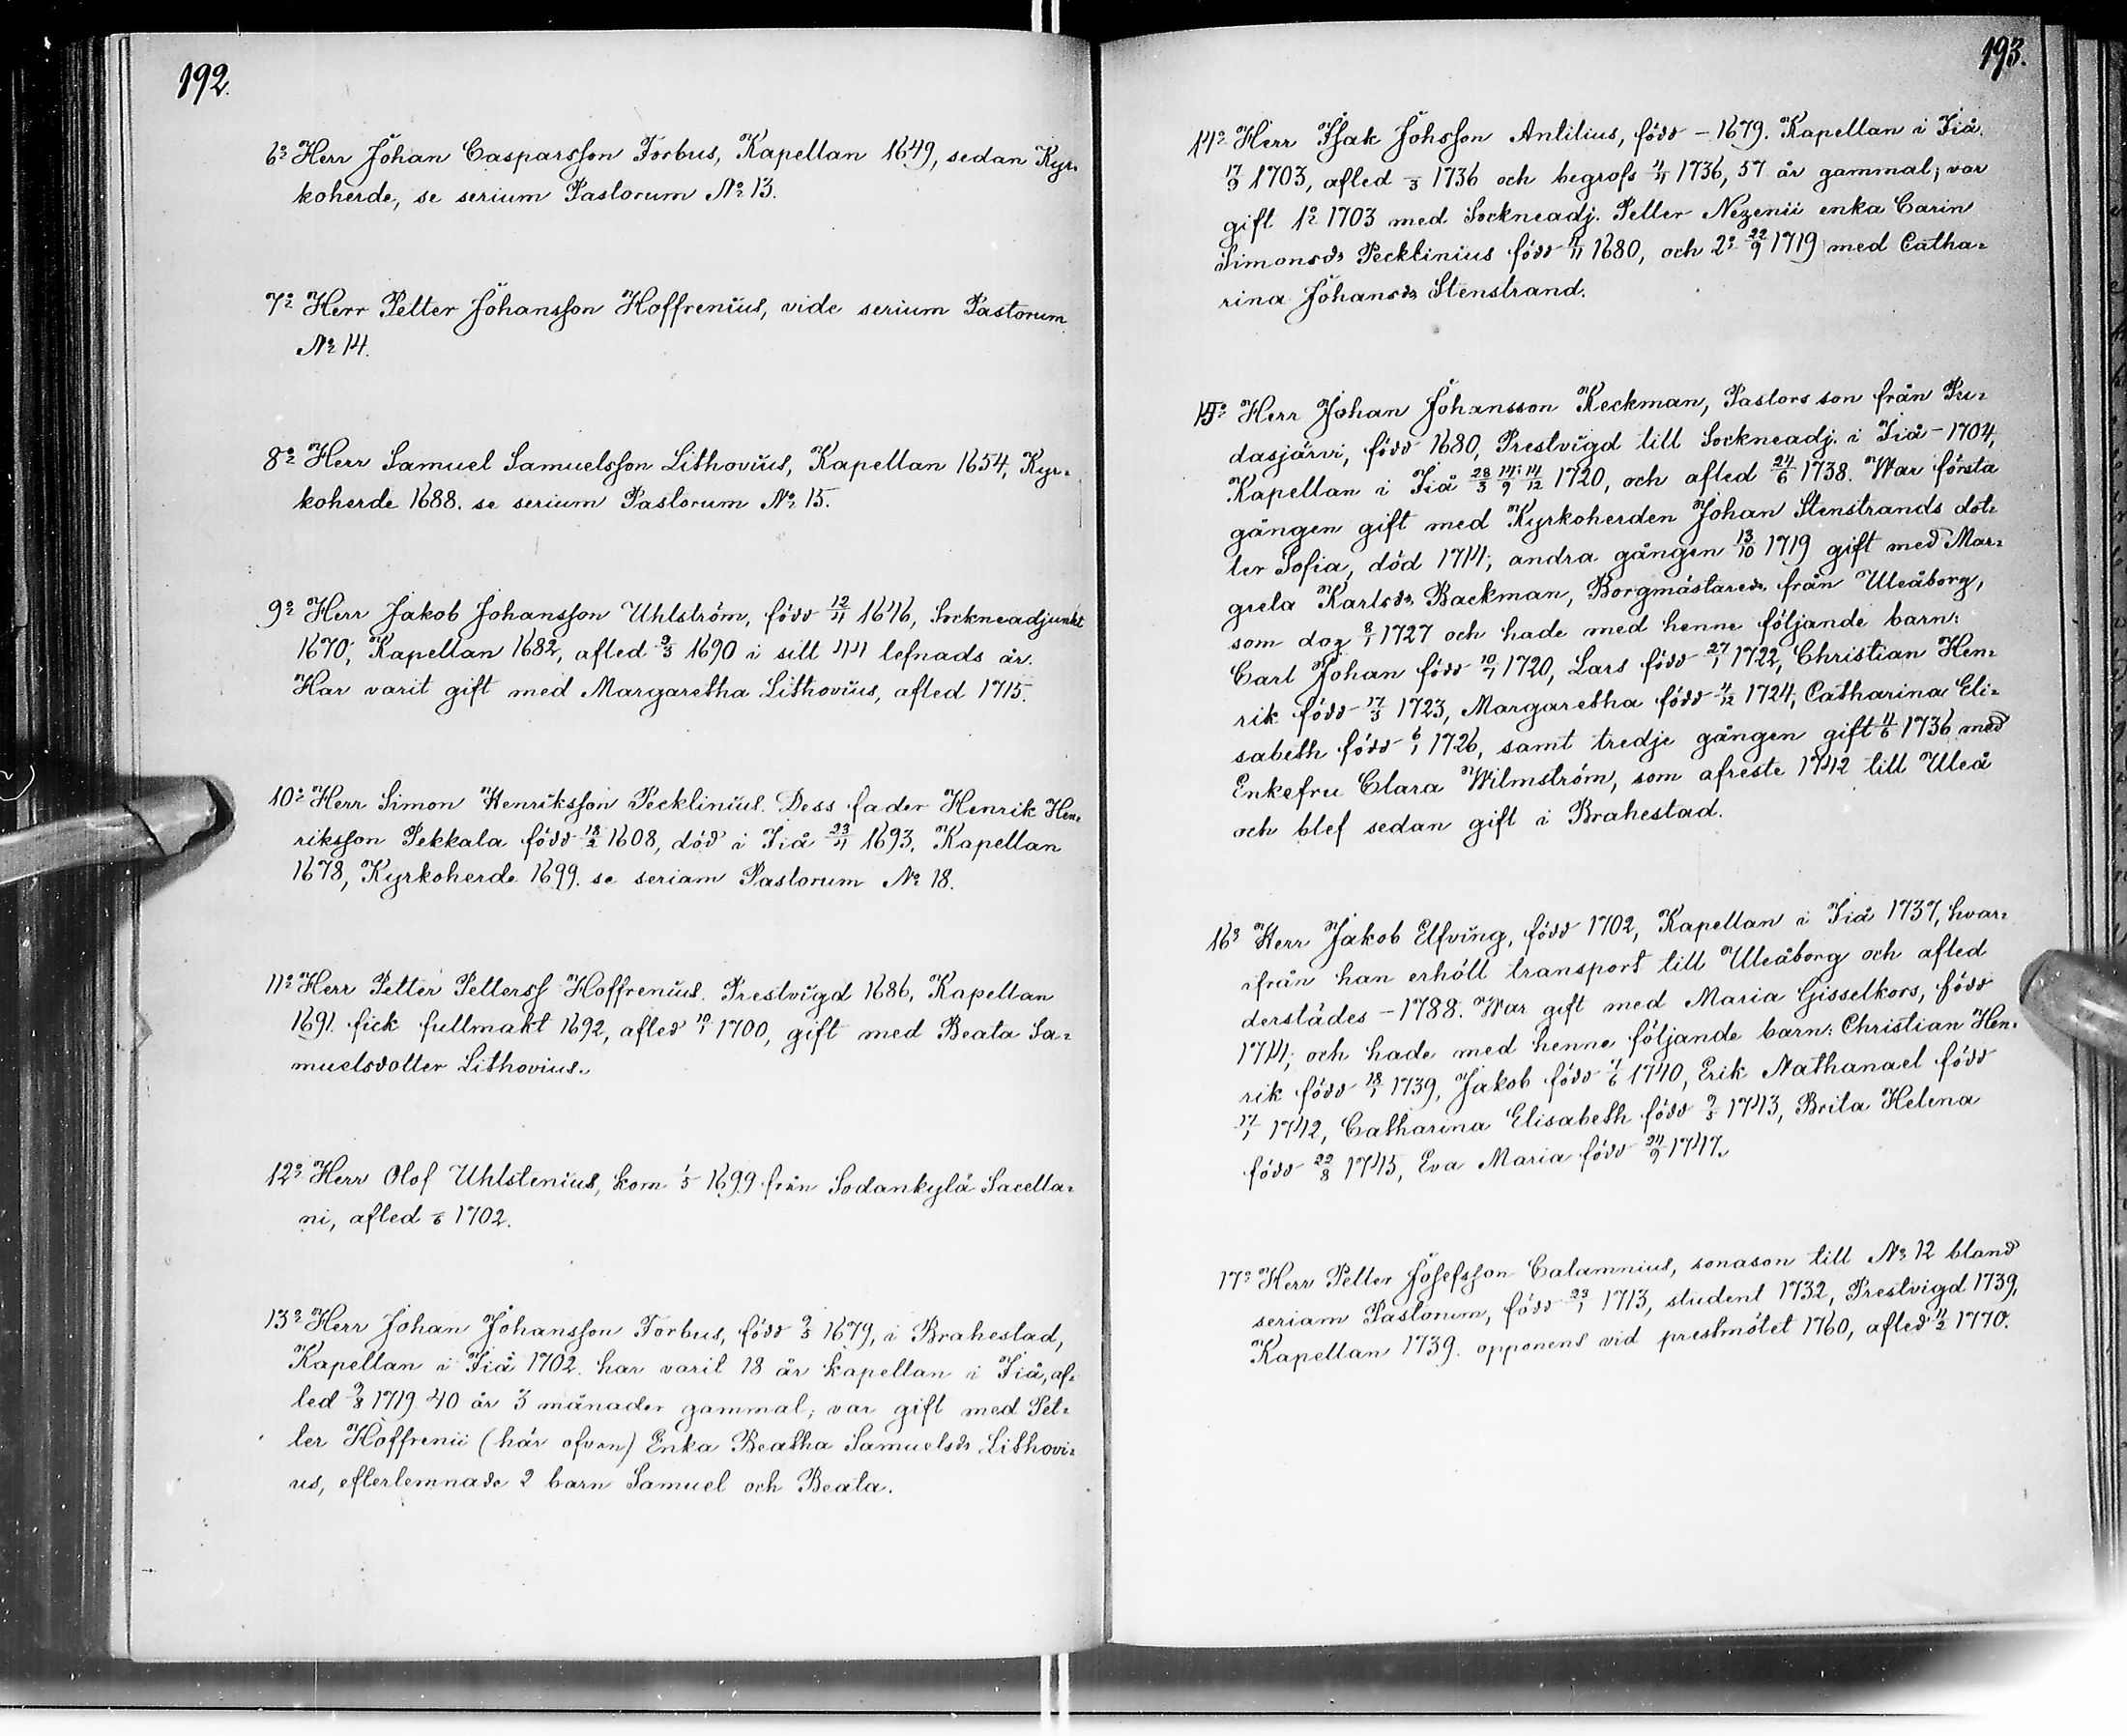 192.
6º Herr Johan Casparsson Forbus, Kapellan 1649, sedan Kyr=
koherde, se serium Pastorum Nº 13.
7º Herr Petter Johansson Hoffrenius, vide serium Pastorum
Nº 14.
8º Herr Samuel Samuelsson Lithovius, Kapellan 1654, Kyr=
koherde 1688. se serium Pastorum Nº 15.
9º Herr Jakob Johansson Uhlström, född 12/11 1646, Sockneadjunkt
1670, Kapellan 1682, afled 9/3 1690 i sitt 44 lefnads år.
Har varit gift med Margaretha Lithovius, afled 1715.
10º Herr Simon Henriksson Pecklinius. Dess fader Henrik Hen=
riksson Pekkala född 18/2 1608, död i Iiå 23/11 1693. Kapellan
1678, Kyrkoherde 1699. se seriam Pastorum Nº 18.
11º Herr Petter Petterss Hoffrenius. Prestvigd 1686, Kapellan
1691. fick fullmakt 1692, afled 10/1 1700, gift med Beata Sa=
muelsdotter Lithovius.
12º Herr Olof Uhlstenius, kom 1/5 1699 från Sodankylä Sacella=
ni, afled -/6 1702.
13º Herr Johan Johansson Forbus, född 9/5 1679, i Brahestad,
Kapellan i Iiå 1702. har varit 18 år kapellan i Iiå, af=
led 9/8 1719. 40 år 3 månader gammal; var gift med Pet=
ter Hoffrenii (här ofvan) Enka Beatha Samuelsdr Lithovi=
us, efterlemnade 2 barn Samuel och Beata.
193.
14º Herr Isak Johsson Antilius, född - 1679. Kapellan i Iiå
17/9 1703, afled -/3 1736 och begrofs 4/4 1736, 57 år gammal; var
gift 1º 1703 med Sockneadj. Petter Nezenii enka Carin
Simonsdr Pecklinius född 1680, och 2º 22/9 1719 med Catha=
rina Johansdr Stenstrand.
15º Herr Johan Johansson Keckman, Pastors son från Pu=
dasjärvi, född 1680, Prestvigd till Sockneadj. i Iiå - 1704,
Kapellan i Iiå 28/3 14/9 14/12 1720, och afled 24/6 1738. War första
gången gift med Kyrkoherden Johan Stenstrands dot=
ter Sofia, död 1714; andra gången 13/10 1719 gift med Mar=
greta Karlsdr Backman, Borgmästaredr från Uleåborg,
som dog 8/1 1727 och hade med henne följande barn:
Carl Johan född 10/7 1720, Lars född 27/1 1722, Christian Hen=
rik född 17/3 1723, Margaretha född 4/12 1724, Catharina Eli=
sabeth född 6/1 1726, samt tredje gången gift 4/6 1736 med
Enkefru Clara Wilmström, som afreste 1742 till Uleå
och blef sedan gift i Brahestad.
16º Herr Jakob Elfving, född 1702, Kapellan i Iiå 1737, hvar=
ifrån han erhöll transport till Uleåborg och afled
derstädes - 1788. War gift med Maria Gisselkors, född
1714; och hade med henne följande barn: Christian Hen=
rik född 18/1 1739, Jakob född 7/6 1740, Erik Nathanael född
17/1 1742, Catharina Elisabeth född 9/5 1743, Brita Helena
född 22/8 1745, Eva Maria född 24/9 1747.
17º Herr Petter Josefsson Calamnius, sonason till Nº 12 bland
seriam Pastorum, född 23/1 1713, student 1732, Prestvigd 1739,
Kapellan 1739. opponens vid prestmötet 1760, afled 11/2 1770.